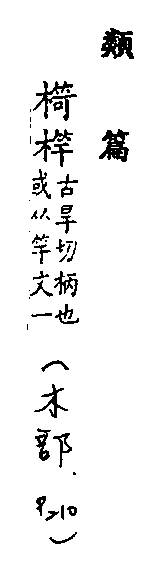 類篇
㮥桿古旱切柄也或从竿文一(木部.P210)